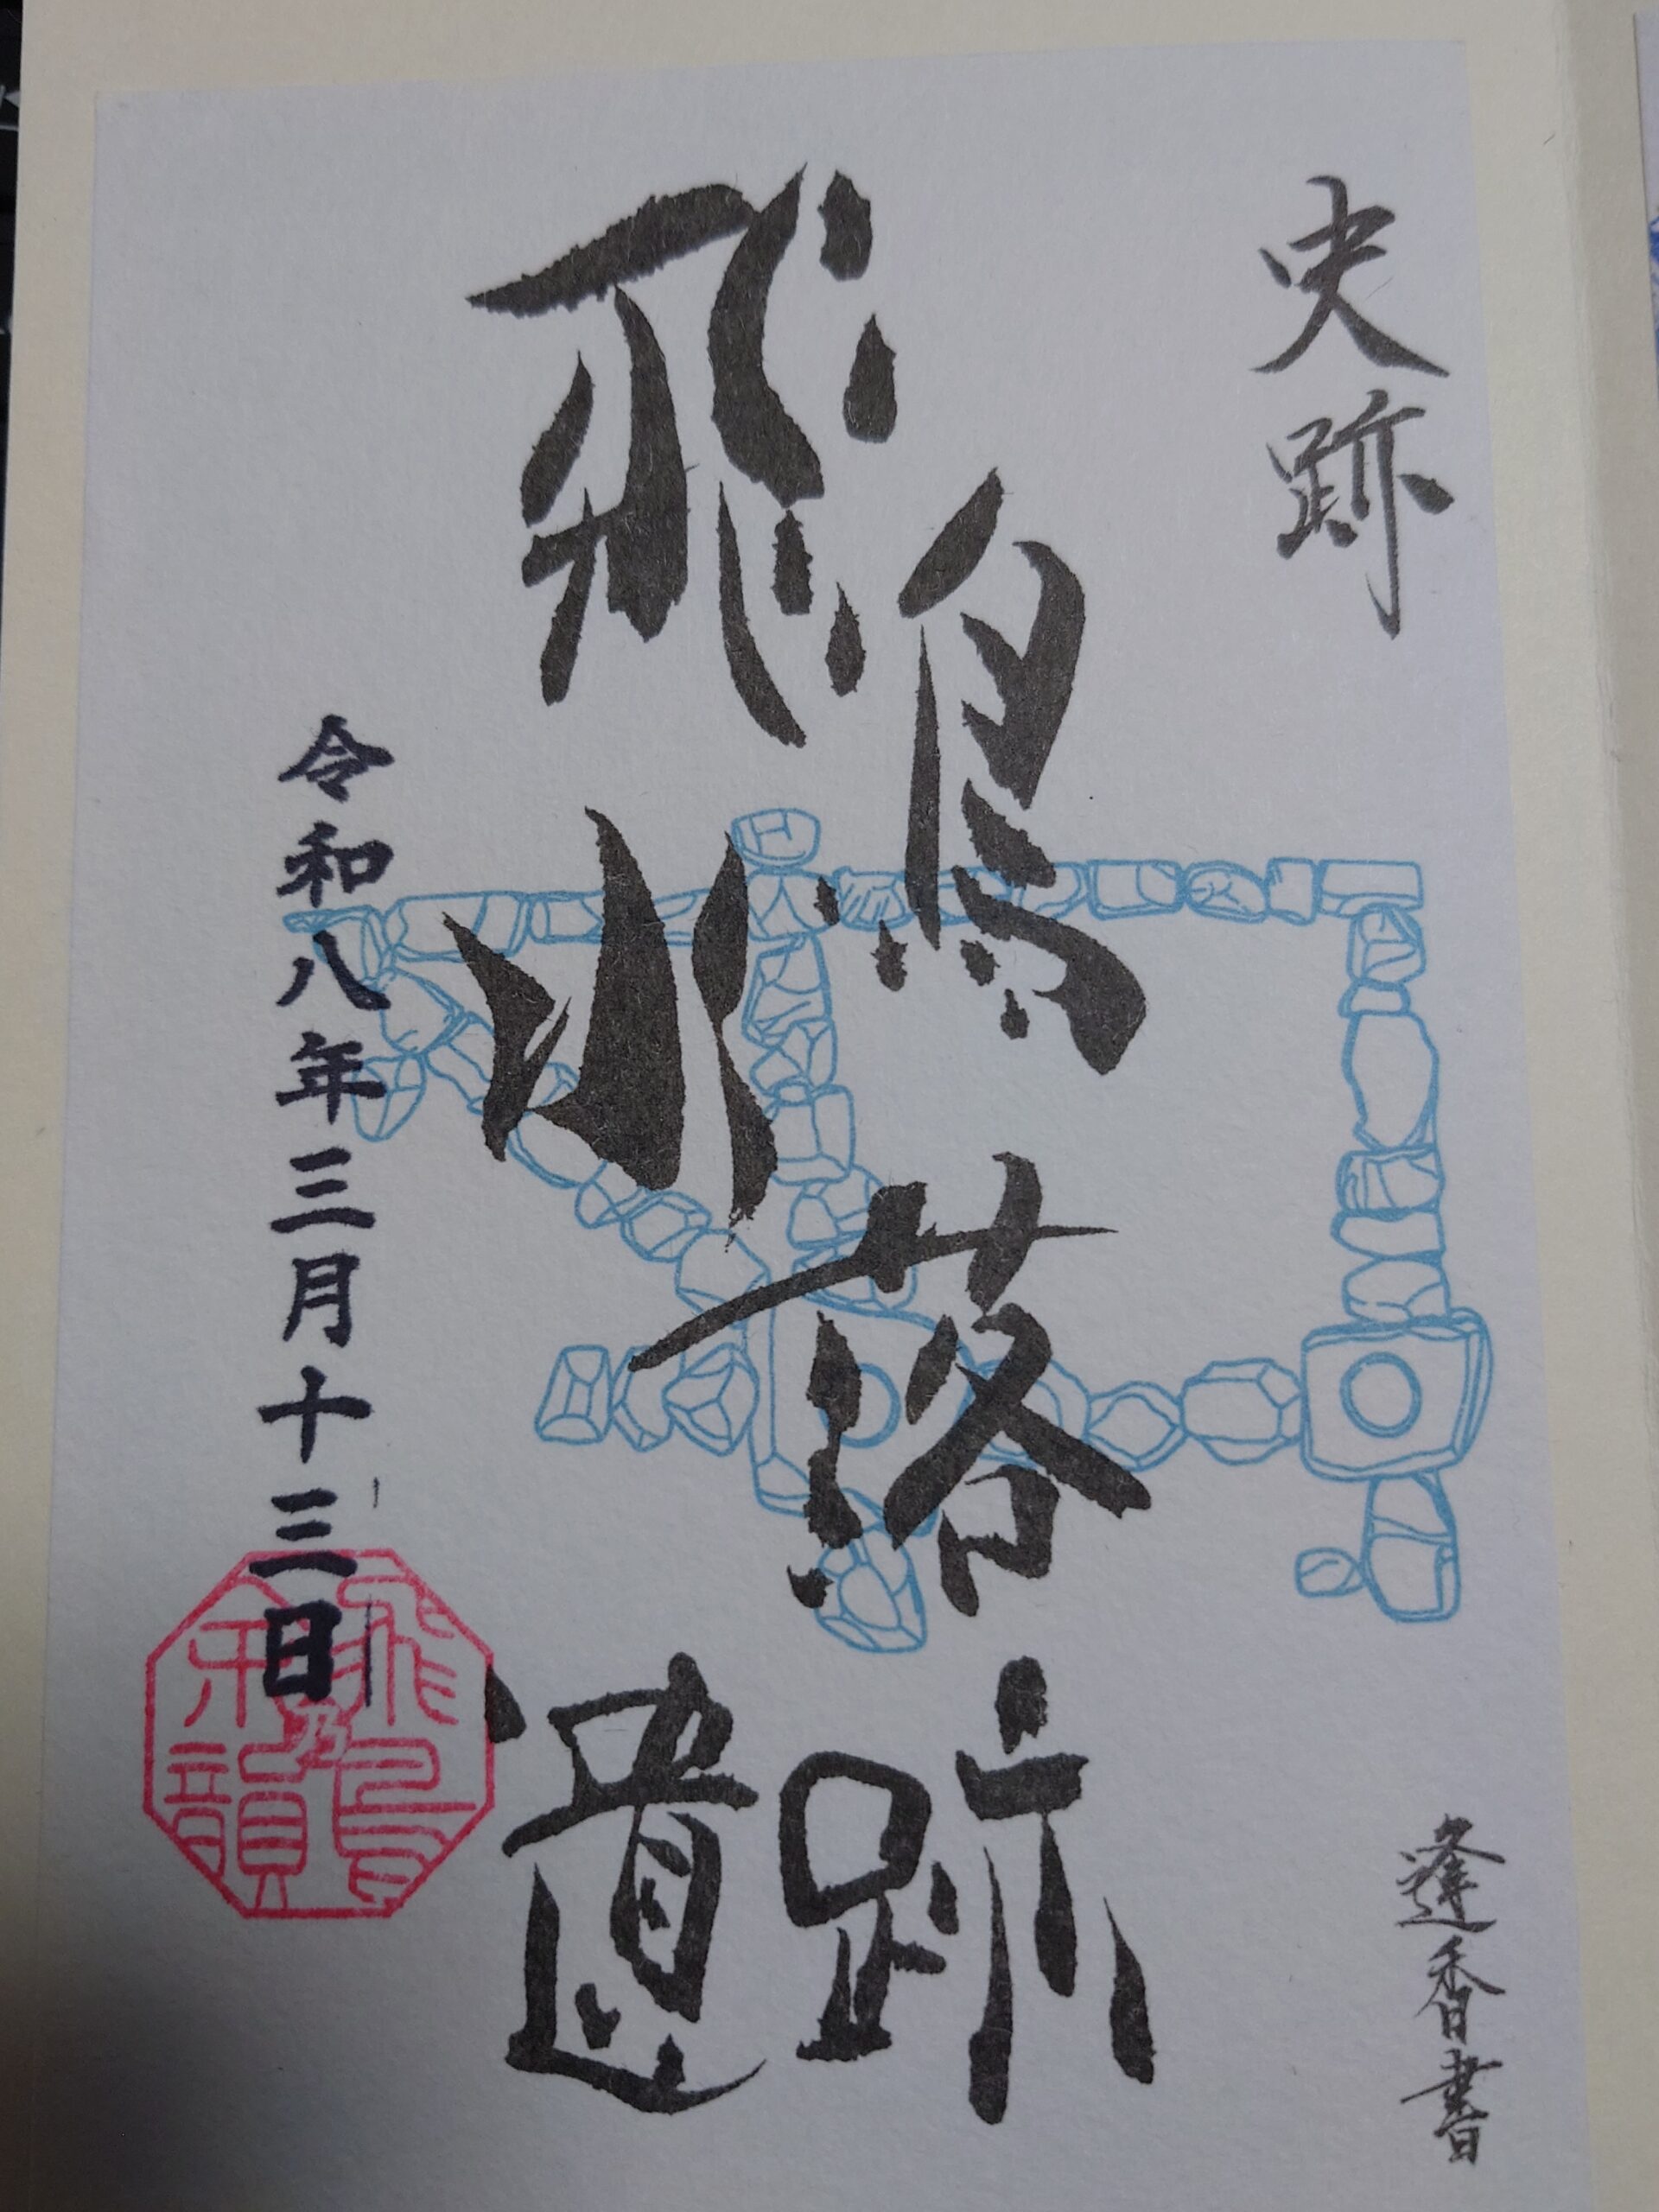 史跡
逢香書
飛鳥水落遺跡
令和八年三月十三日
飛鳥乃余韻